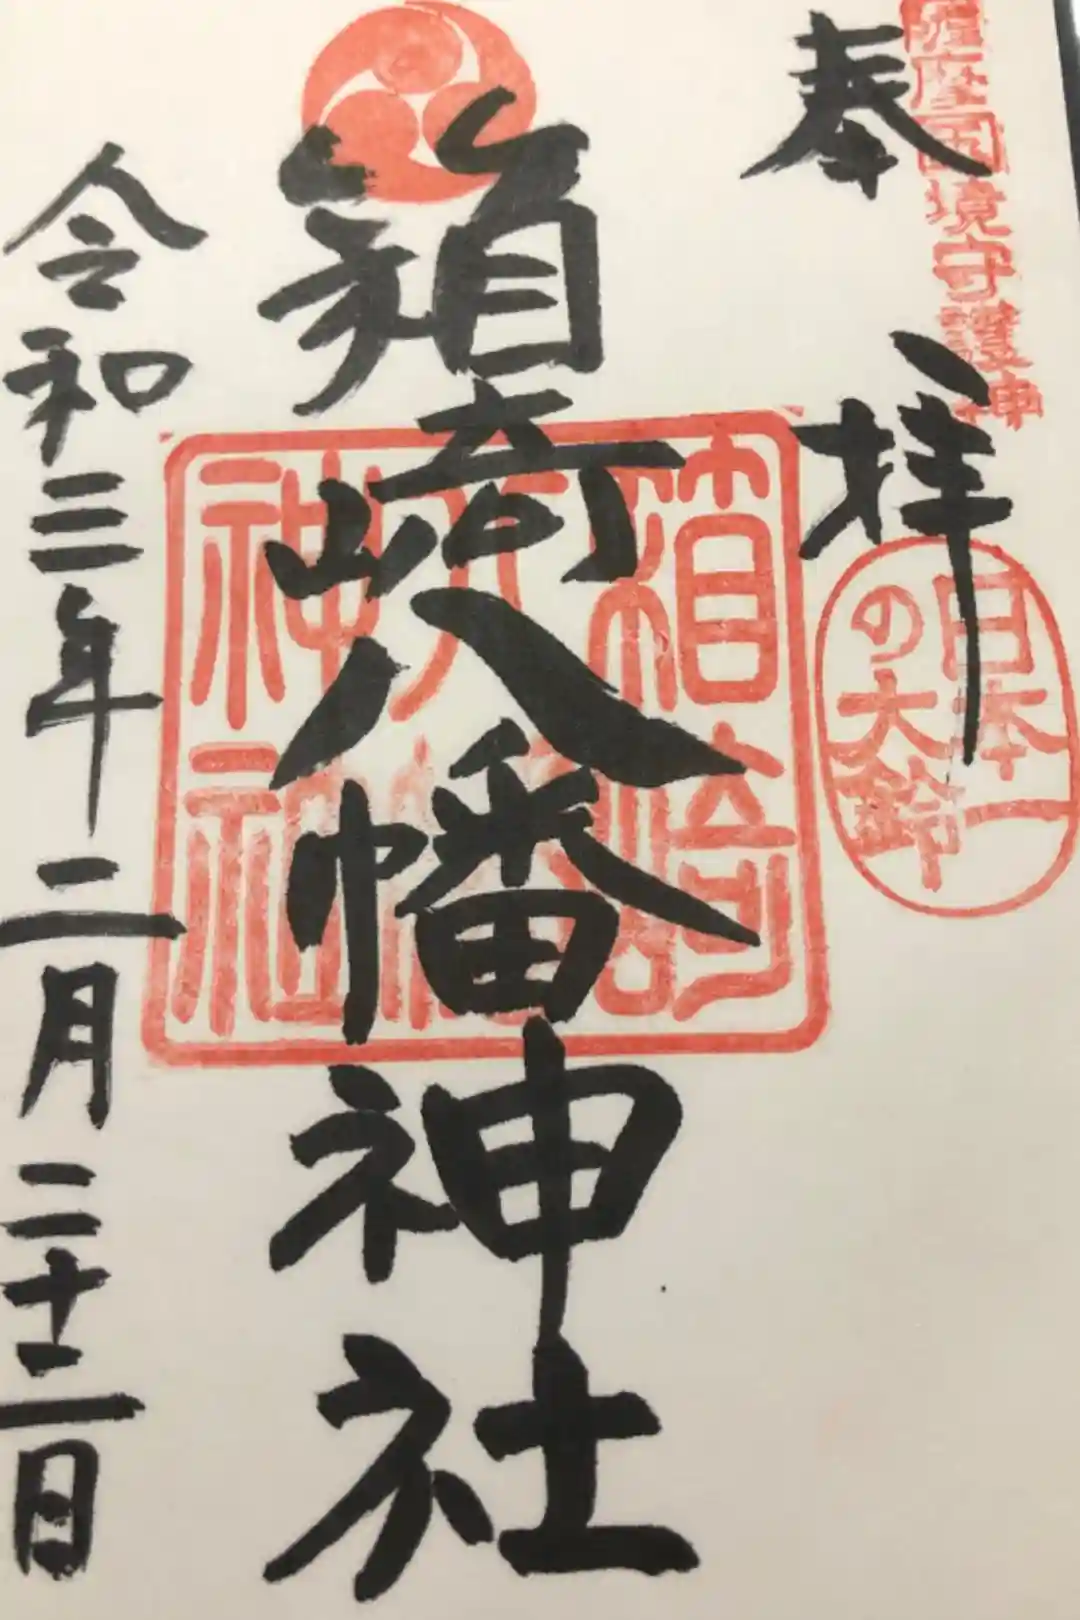 薩摩國境守護神
奉拝
日本一
の大鈴
箱崎八幡神社
箱崎
八幡
神社
令和三年二月二十二日